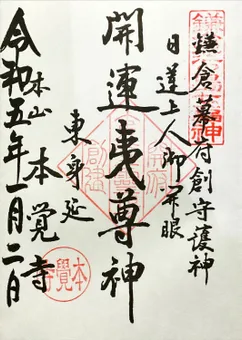 鎌倉幕府創守護神
日蓮上人御開眼
開運夷尊神
東身延
本山 本覺寺
令和五年一月二日
本覺寺